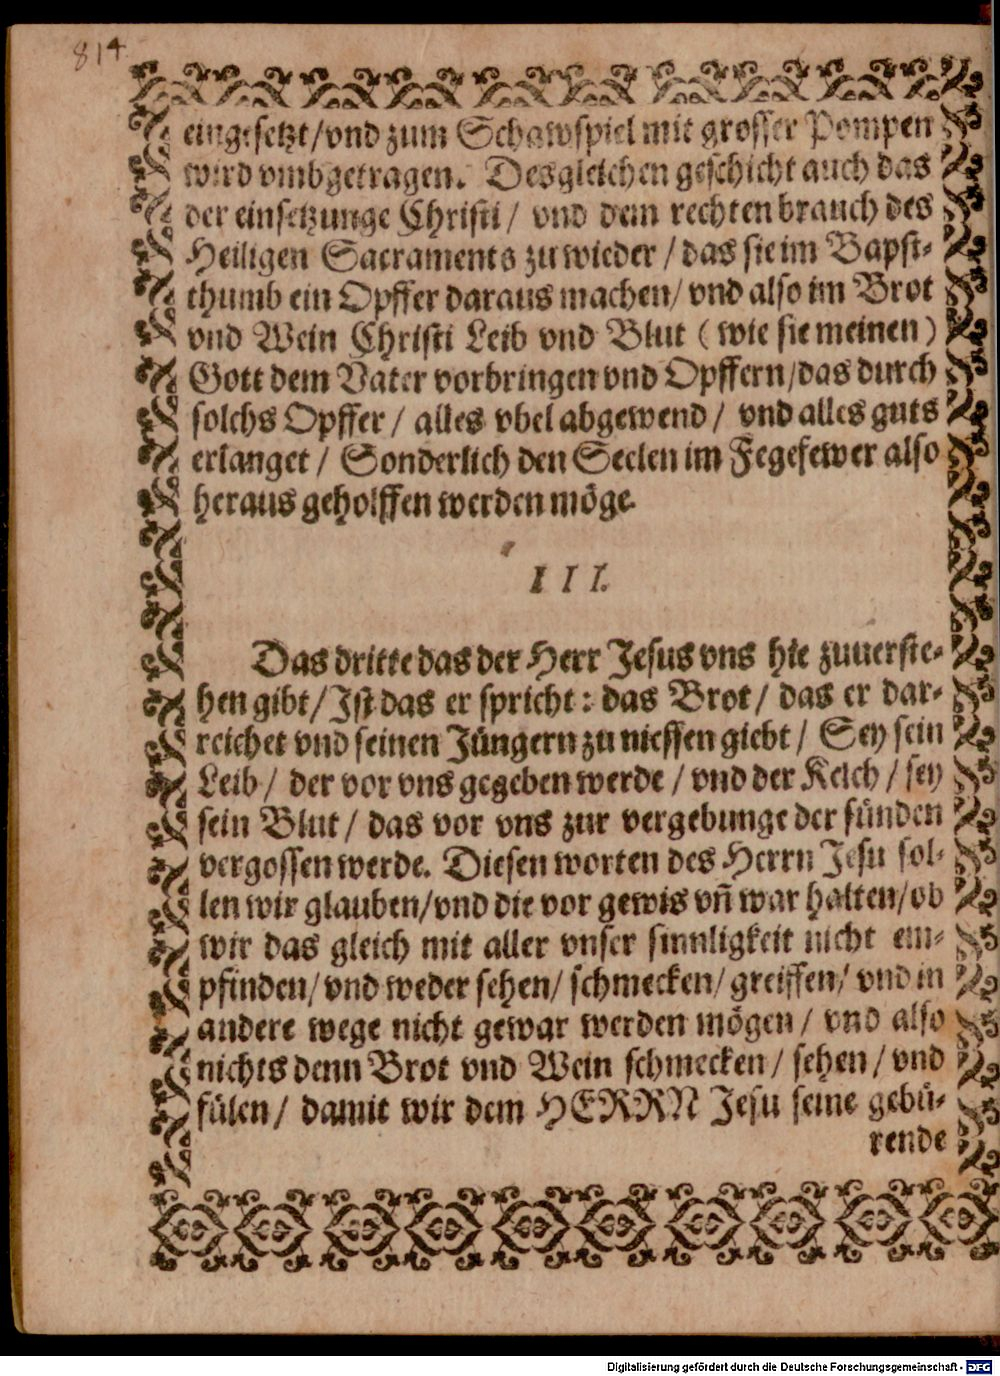 814
eingesetzt/vnd zum Schawspiel mit grosser Pompen
wird vmbgetragen. Desgleichen geschicht auch das
der einsetzunge Christi/ vnd dem rechten brauch des
Heiligen Sacraments zu wieder/das sie im Bapst-
thumb ein Opffer daraus machen/vnd also im Brot
vnd Wein Christi Leib vnd Blut (wie sie meinen)
Gott dem Vater vorbringen vnd Opffern/das durch
solchs Opffer/ alles vbel abgewend/ vnd alles guts
erlanget/ Sonderlich den Seelen im Fegefewer also
heraus geholffen werden möge.
III.
Das dritte das der Herr Jesus vns hie zuuerste-
hen gibt/Ist das er spricht: das Brot/ das er dar-
reichet vnd seinen Jüngern zu niessen giebt/ Sey sein
Leib/ der vor vns gegeben werde/vnd der Kelch/sey
sein Blut/ das vor vns zur vergebunge der sünden
vergossen werde. Diesen worten des Herrn Jesu sol-
len wir glauben/vnd die vor gewis vñ war halten/ob
wir das gleich mit aller vnser sinnligkeit nicht em-
pfinden/vnd weder sehen/ schmecken/greiffen/ vnd in
andere wege nicht gewar werden mögen/ vnd also
nichts denn Brot vnd Wein schmecken/ sehen/vnd
fülen/ damit wir dem HERRN Jesu seine gebü-
rende
Digitalisierung gefördert durch die Deutsche Forschungsgemeinschaft - DFG